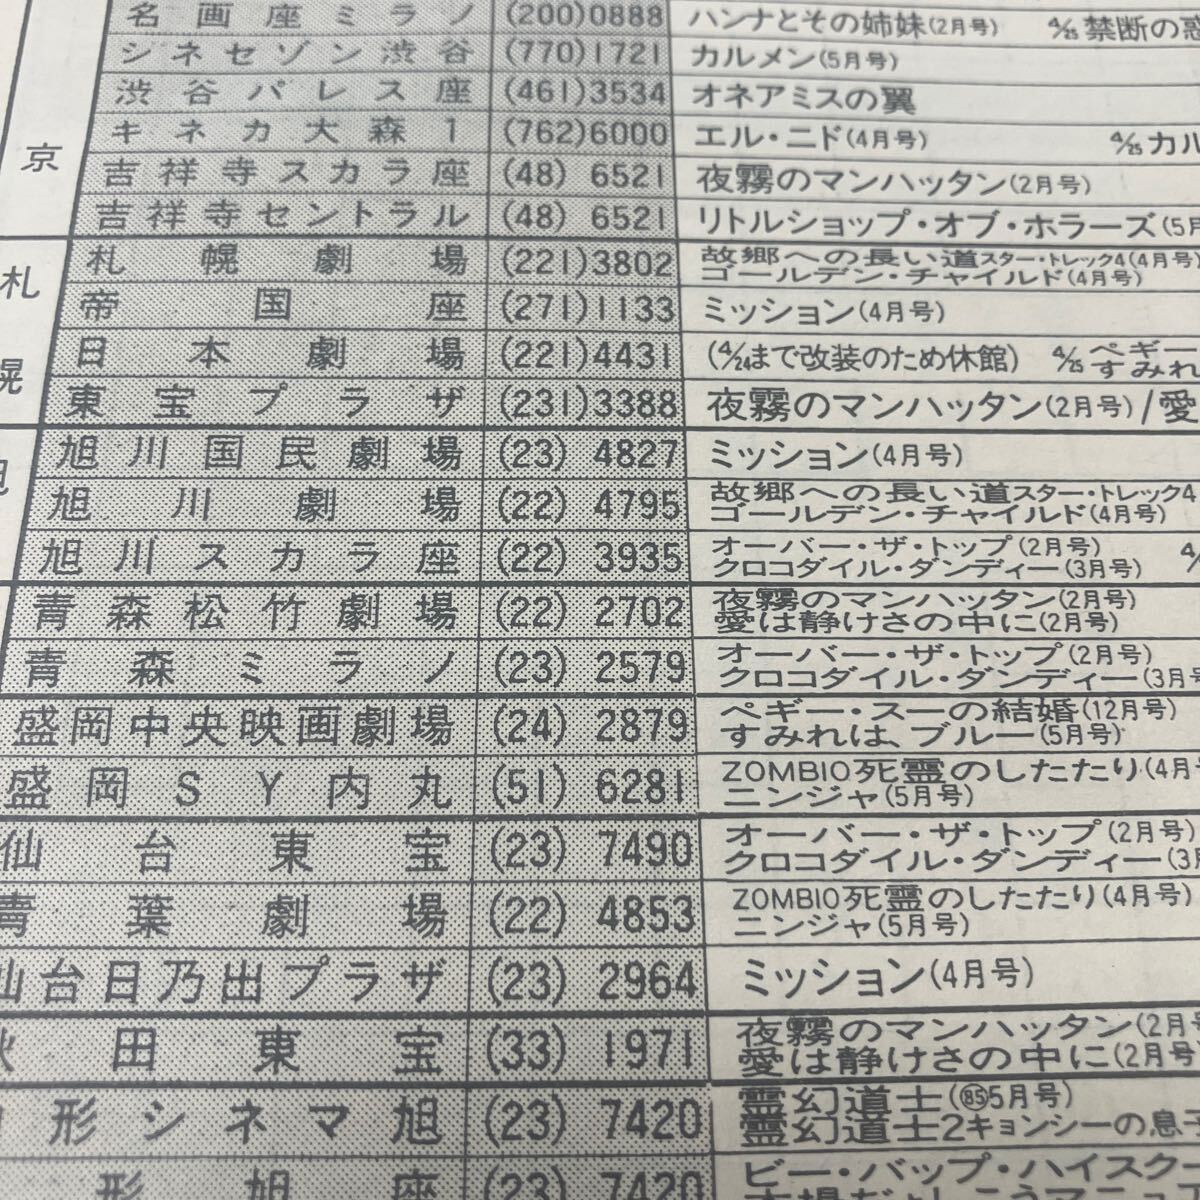 京
名画座ミラノ (200)0888 ハンナとその姉妹(2月号) 4/25禁断の惑
シネセゾン渋谷 (770)1721 カルメン(5月号)
渋谷パレス座 (461)3534 オネアミスの翼
キネカ大森1 (762)6000 エル・ニド(4月号) 4/25カル
吉祥寺スカラ座 (48) 6521 夜霧のマンハッタン(2月号)
吉祥寺セントラル (48) 6521 リトルショップ・オブ・ホラーズ(5月
札幌
札幌劇場 (221)3802 故郷への長い道スター・トレック4(4月号)
ゴールデン・チャイルド(4月号)
帝国座 (271)1133 ミッション(4月号)
日本劇場 (221)4431 (4/24まで改装のため休館) 4/25ペギー
すみれ
東宝プラザ (231)3388 夜霧のマンハッタン(2月号)/愛
旭川国民劇場 (23) 4827 ミッション(4月号)
旭川劇場 (22) 4795 故郷への長い道スター・トレック4
ゴールデン・チャイルド(4月号)
旭川スカラ座 (22) 3935 オーバー・ザ・トップ(2月号)
クロコダイル・ダンディー(3月号)
青森松竹劇場 (22) 2702 夜霧のマンハッタン(2月号)
愛は静けさの中に(2月号)
青森ミラノ (23) 2579 オーバー・ザ・トップ(2月号)
クロコダイル・ダンディー(3月号
盛岡中央映画劇場 (24) 2879 ペギー・スーの結婚(12月号)
すみれは、ブルー(5月号)
盛岡SY内丸 (51) 6281 ZOMBIO死霊のしたたり(4月号
ニンジャ(5月号)
仙台東宝 (23) 7490 オーバー・ザ・トップ(2月号)
クロコダイル・ダンディー(3月
青葉劇場 (22) 4853 ZOMBIO死霊のしたたり(4月号)
ニンジャ(5月号)
仙台日乃出プラザ (23) 2964 ミッション(4月号)
秋田東宝 (33) 1971 夜霧のマンハッタン(2月号
愛は静けさの中に(2月号)
形シネマ旭 (23) 7420 霊幻道士(85 5月号)
霊幻道士2キョンシーの息子
形旭座 (23) 7420 ビー・バップ・ハイスクー